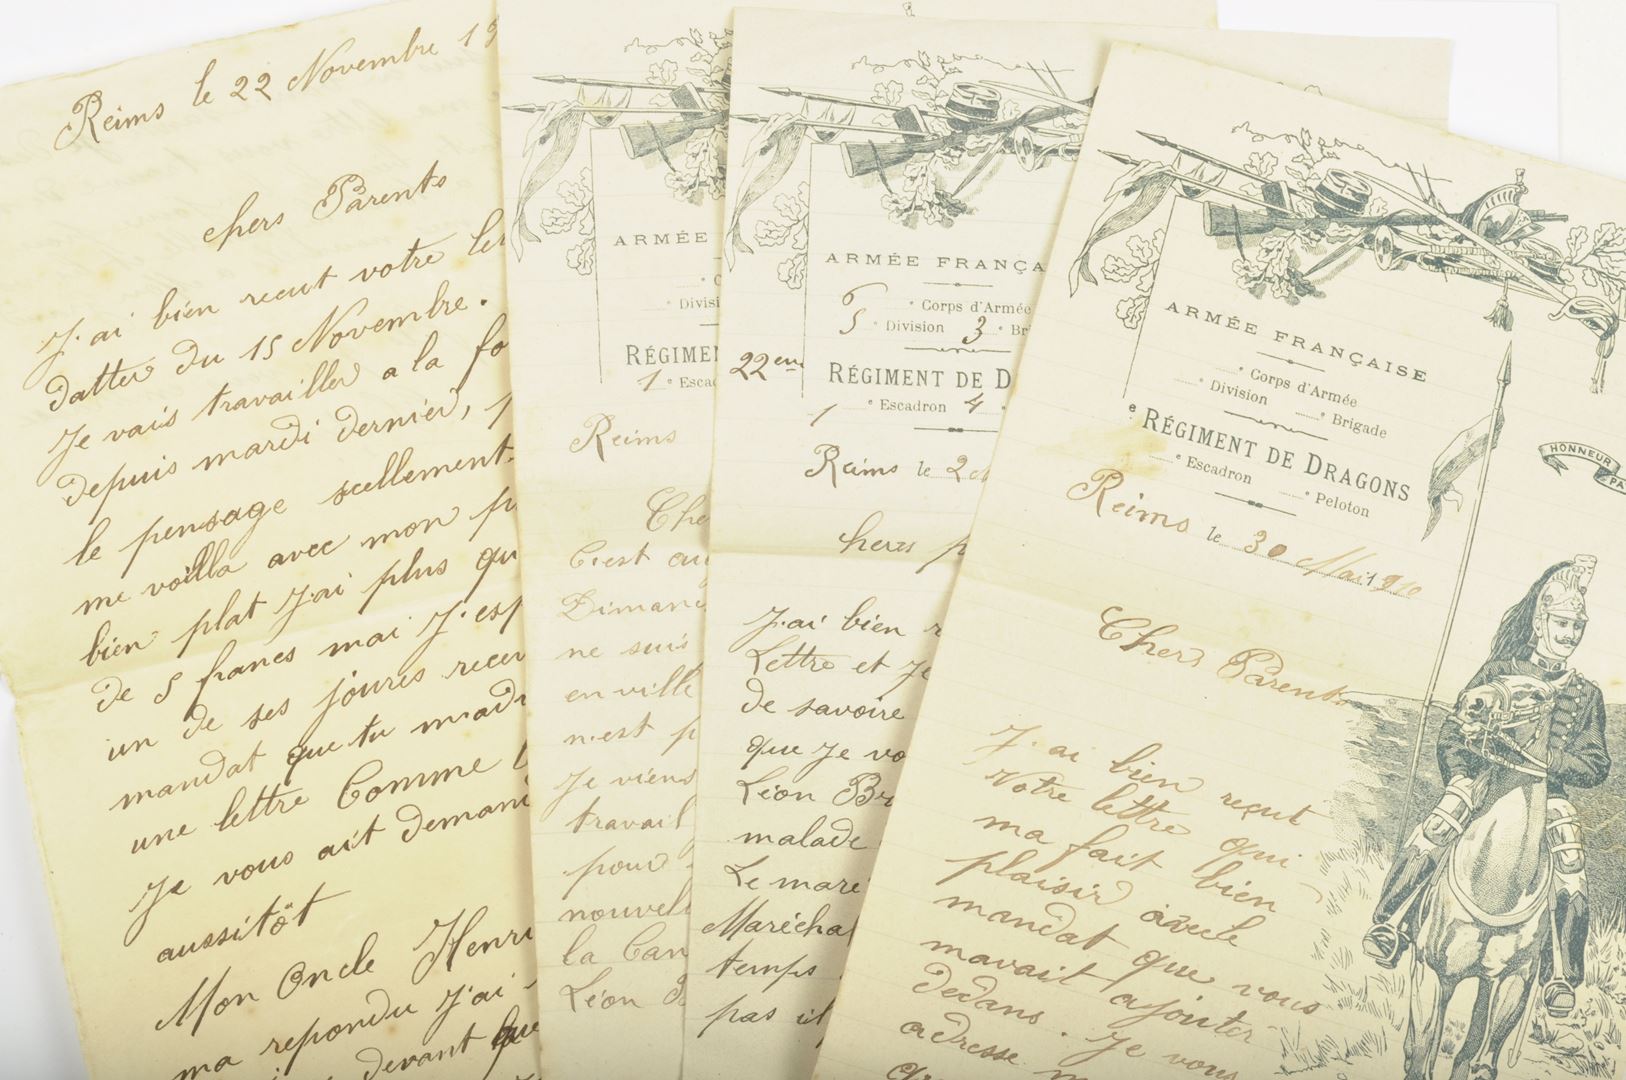 Reims le 22 Novembre 19
chers Parents
J'ai bien recut votre
datter du 15 Novembre.
Je vais travailler a la
depuis mardi dernier,
le pensage seellement.
me voilla avec mon
bien plat J'ai plus
de 5 francs mai J'esp
un de ses joures recev
mandat que tu m'ad
une lettre Comme
Je vous ait demand
aussitôt
Mon Oncle Henri
ma repondu J'ai
devant que
ARMÉE
Divisi
RÉGIME
1e Esca
Reims
Che
C'est
Dimanc
ne suis
en ville
n'est p
Je viens
travail
pour
nouvel
la Can
Léon
ARMÉE FRANÇA
e Corps d'Armée
5e Division 3e Br
22em RÉGIMENT DE D
1e Escadron 4
Reims le 2
hers p
J'ai bien r
Lettre et Je
de savoire
que Je vo
Léon Br
malade
Le mare
Marécha
temps
pas il
ARMÉE FRANÇAISE
e Corps d'Armée
e Division e Brigade
e RÉGIMENT DE DRAGONS
e Escadron e Peloton
HONNEUR PA
Reims le 30 Mai 1910
Chers Parents
J'ai bien reçut
Votre lettre qui
ma fait bien
plaisir avecle
mandat que vous
mavait ajouter
dedans. Je vous
adresse m